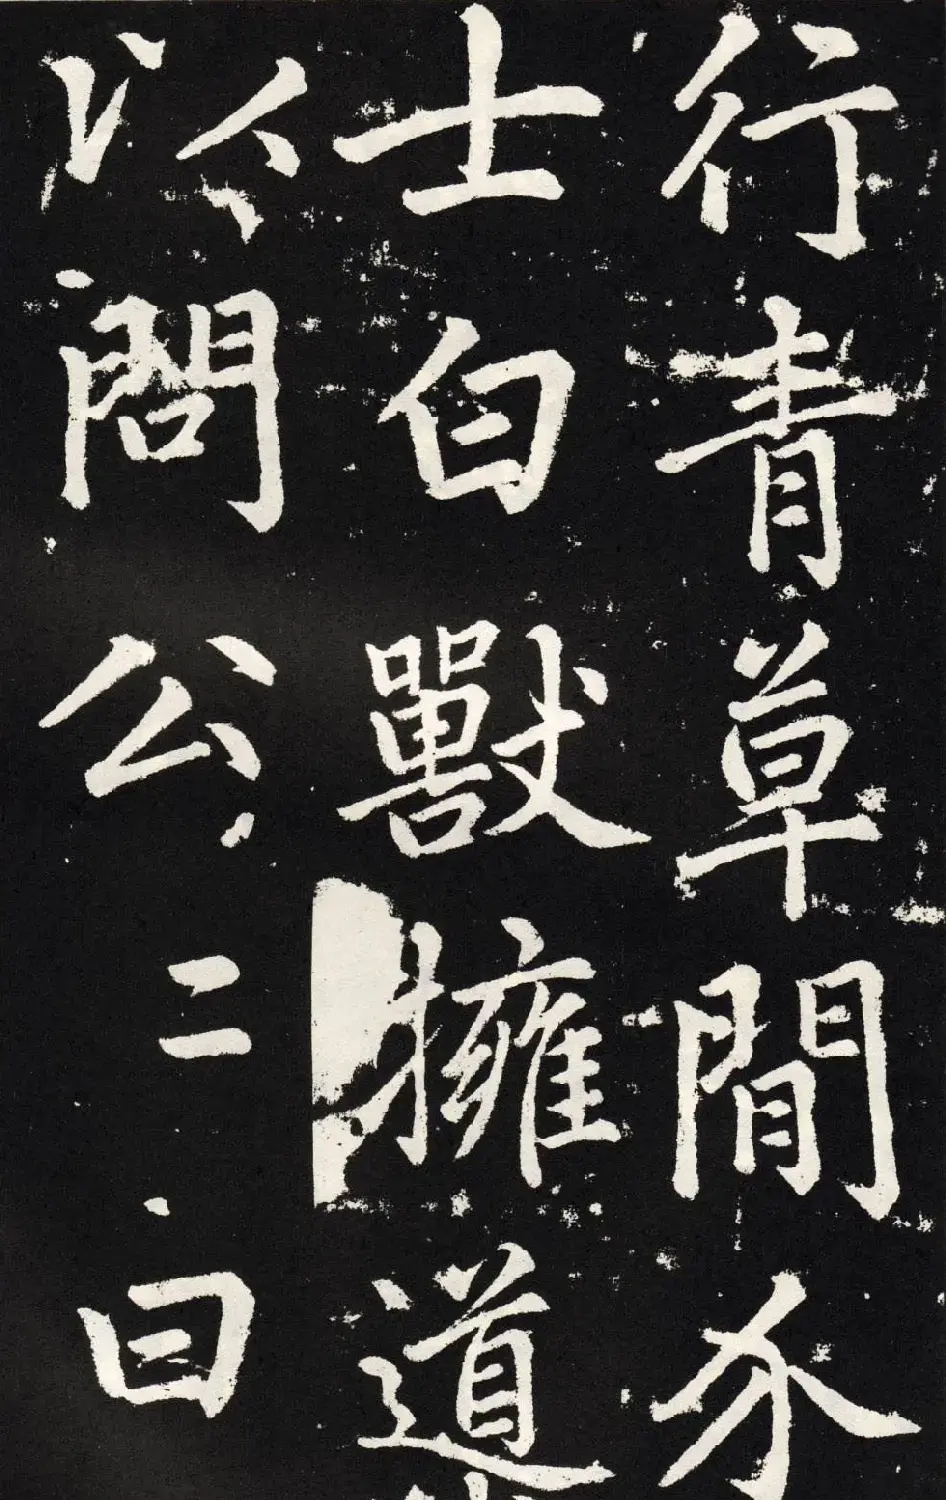 行青草間介
士白獸擁道
以問公二曰